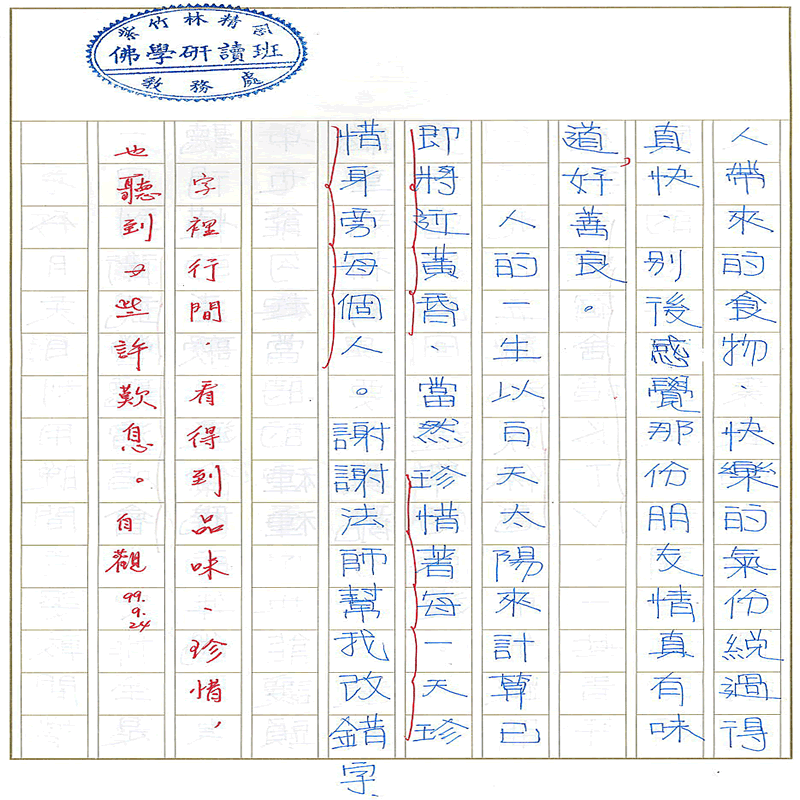 紫竹林精舍
佛學研讀班
教務處
人帶來的食物、快樂的氣份總過得
真快、別後感覺那份朋友情真有味
道,好善良。
人的一生以白天太陽來計算已
即將近黃昏、當然珍惜著每一天珍
惜身旁每個人。謝謝法師幫我改錯
字、
字裡行間、看得到品味、珍惜,
也聽到一些許歎息。自觀
99.
9.
24